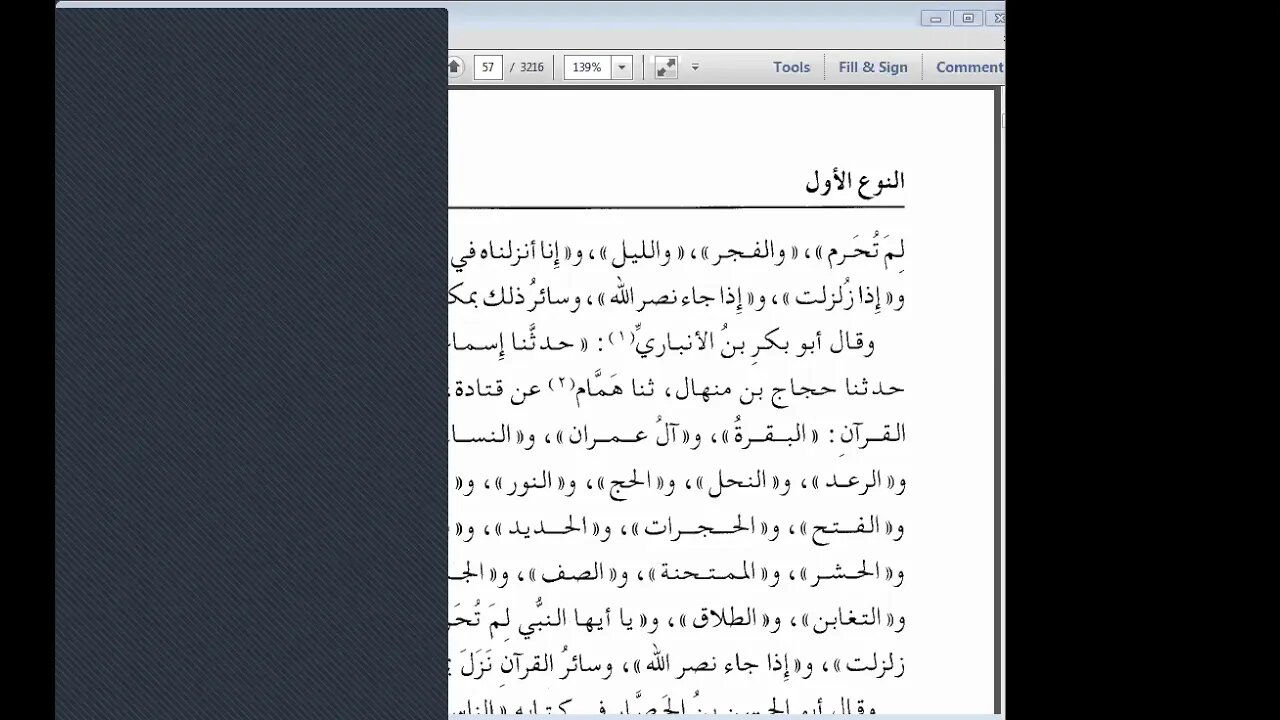 57 / 3216 139% Tools Fill & Sign Comment
النوع الأول
لِمَ تُحَرم»، «والفجر»، «والليل»، و«إِنا أنزلناه في
و«إِذا زُلزلت»، و«إِذا جاء نصر الله»، وسائرُ ذلك بمك
وقال أبو بكرِ بنُ الأنباريِّ(١): «حدثَّنا إِسما
حدثنا حجاج بن منهال، ثنا هَمَّام(٢) عن قتادة،
القرآنِ: «البقرةُ»، و«آلُ عمران»، و«النسا
و«الرعد»، و«النحل»، و«الحج»، و«النور»، و«
و«الفتح»، و«الحجرات»، و«الحديد»، و«
و«الحشر»، و«الممتحنة»، و«الصف»، و«الجـ
و«التغابن»، و«الطلاق»، و«يا أيها النبُّي لِمَ تُحَر
زلزلت»، و«إِذا جاء نصر الله»، وسائرُ القرآنِ نَزَلَ
وقال أبو الحسن بنُ الحَصَّار في كتابه «الناس